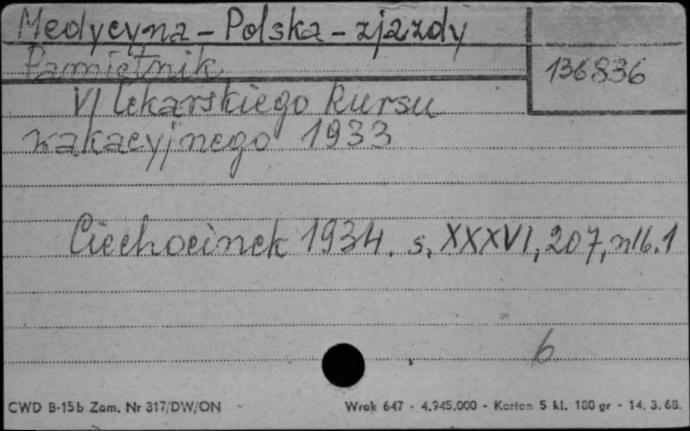 Medycyna - Polska - zjazdy
Pamiętnik
136836
VI lekarskiego kursu
wakacyjnego 1933
Ciechocinek 1934. s. XXXVI, 207, nlb. 1
b
CWD B-15b Zam. Nr 317/DW/ON
Wrok 647 - 4.945.000 - Karton 5 kl. 180 gr - 14. 3. 68.